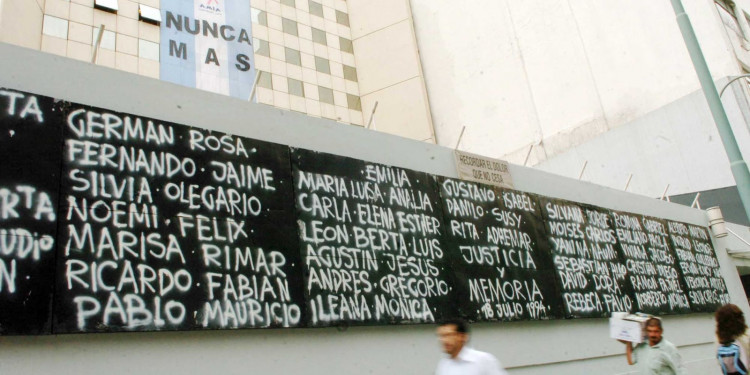 AMIA
NUNCA
MAS
RECORDAR EL DOLOR
QUE NO CESA
TA
RTA
UDIO
N
GERMAN · ROSA ·
FERNANDO · JAIME
SILVIA · OLEGARIO
NOEMI · FELIX ·
MARISA · RIMAR ·
RICARDO · FABIAN
PABLO · MAURICIO
EMILIA
MARIA LUISA · ANALIA
CARLA · ELENA · ESTHER
LEON · BERTA · LUIS
AGUSTIN · JESUS
ANDRES · GREGORIO
ILEANA · MONICA
GUSTAVO · ISABEL
DANILO · SUSY
RITA · ADHEMAR
JUSTICIA
Y
MEMORIA
18 JULIO 1994
SILVANA · JORGE
MOISES · CARLOS
YANINA · NAUM
SEBASTIAN
DAVID · DORA
REBECA
NORBERTO